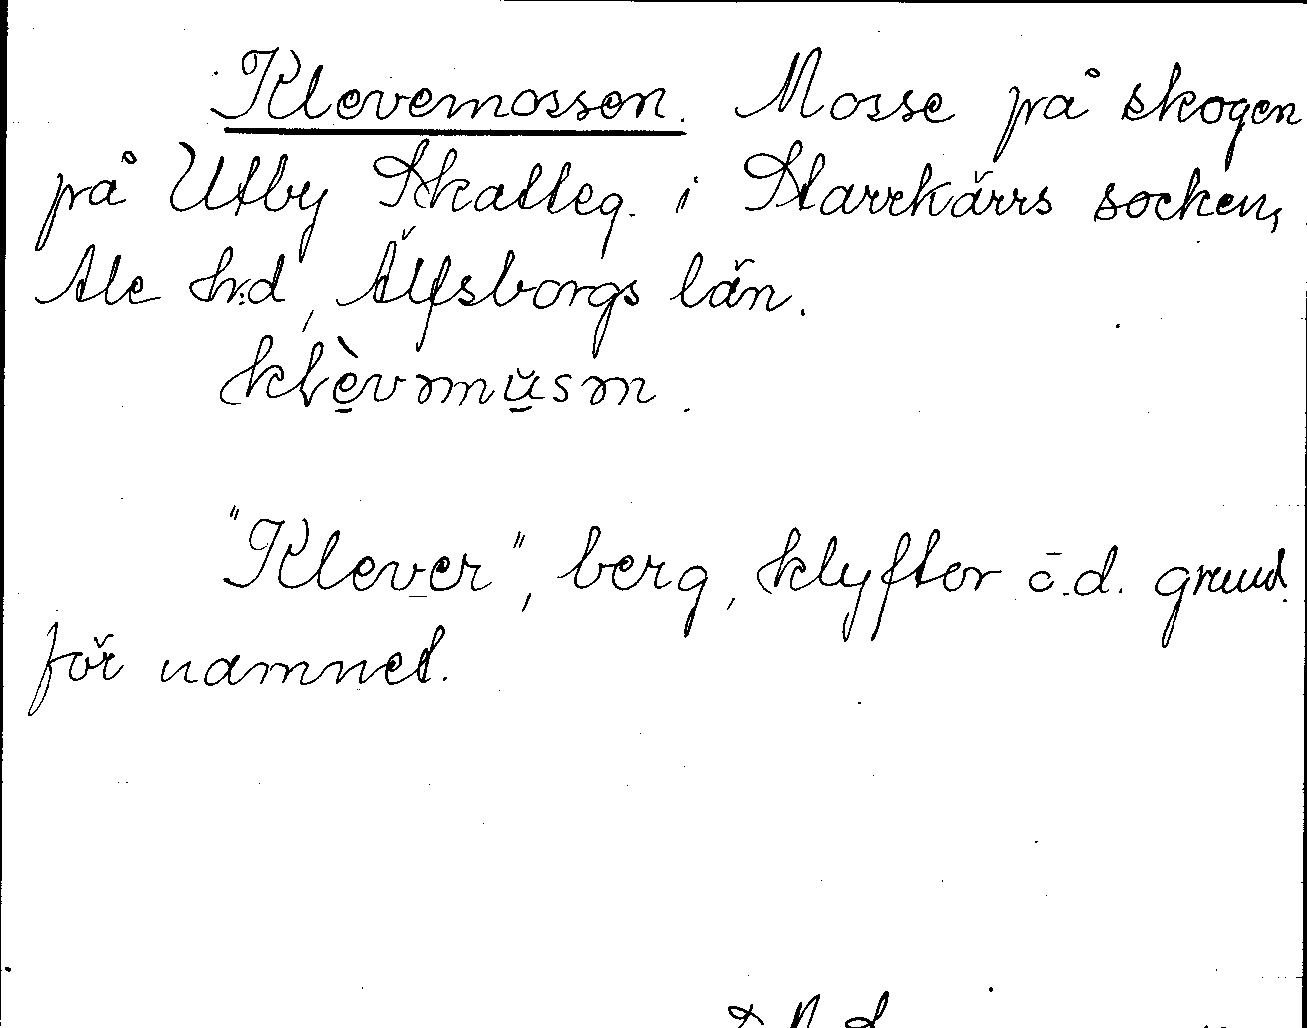 Klevemossen. Mosse på skogen
på Utby Skatteg. i Starrkärrs socken,
Ale h:d, Älfsborgs län.
klèvmu̯sm.
"Klever", berg, klyftor o.d. grund
för namnet.